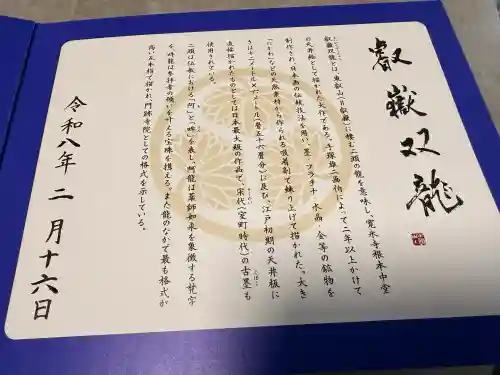 叡嶽双龍
叡嶽双龍とは、東叡山(=叡嶽)に棲む二頭の龍を意味し、寛永寺根本中堂
の天井絵として描かれた大作である。手塚雄二画伯によって二年以上かけて
制作され、日本画の伝統技法を用い、墨、プラチナ、水晶、金等の鉱物を
「にかわ」などの天然素材から作られる吸着剤で練り上げて描かれた。大き
さは十二メートル×六メートル(畳五十六畳分)に及び、江戸初期の天井板に
直接描かれたものとしては日本最大級の作品で、宋代(室町時代)の古墨も
使用されている。
二頭は仏教における「阿」と「吽」を表し、阿龍は薬師如来を象徴する梵字
を、吽龍は参拝者の願いを叶える宝珠を携える。また龍のなかで最も格式が
高い五本指で描かれ、門跡寺院としての格式を示している。
令和八年 二月十六日